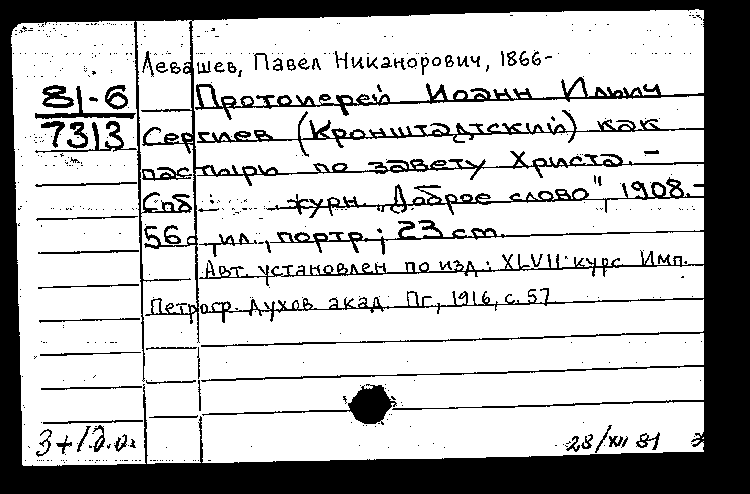 Левашев, Павел Никанорович, 1866-
81-6
7313
Протоиерей Иоанн Ильич
Сергиев (Кронштадтский) как
пастырь по завету Христа. -
Спб : журн. „Доброе слово", 1908.-
56с., ил., портр.; 23 cm.
Авт. установлен по изд.: XLVII курс Имп.
Петрогр. Духов. акад. Пг., 1916, с. 57
28/XII 81